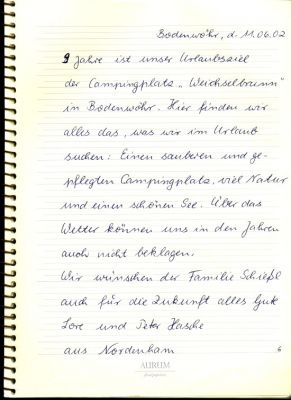 Bodenwöhr, d. 11.06.02
9 Jahre ist unser Urlaubsziel
der Campingplatz „Weichselbrunn"
in Bodenwöhr. Hier finden wir
alles das, was wir im Urlaub
suchen: Einen sauberen und ge-
pflegten Campingplatz, viel Natur
und einen schönen See. Über das
Wetter können uns in den Jahren
auch nicht beklagen.
Wir wünschen der Familie Schießl
auch für die Zukunft alles Gute
Lore und Peter Hasche
aus Nordenham
6
AURUM